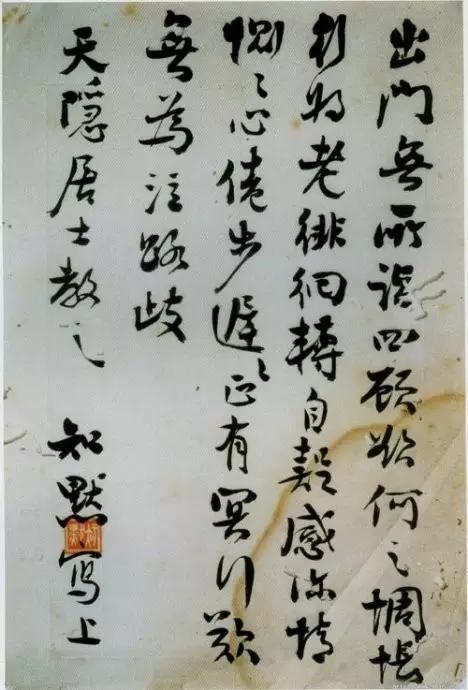 出門無所詣四顧欲何之惆悵
行将老徘徊轉自疑感深情
惻々心倦步遲々正有冥行歎
無為泣路歧
天隱居士教之 知默寫上